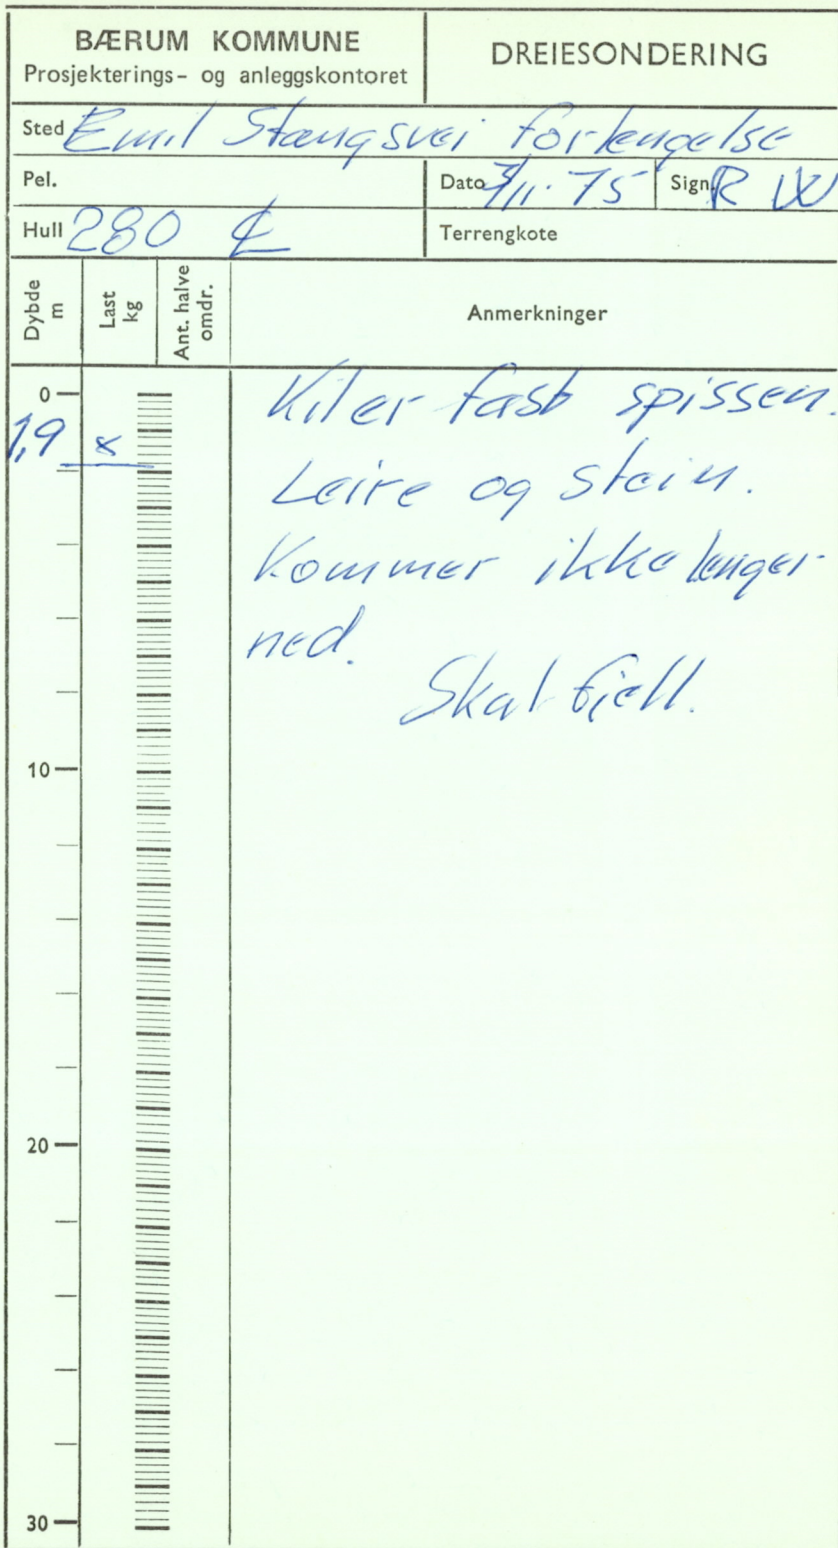 BÆRUM KOMMUNE
Prosjekterings- og anleggskontoret
DREIESONDERING
Sted Emil Stangsvei forlengelse
Pel.
Dato 3/11-75 Sign. R W
Hull 280 ℄
Terrengkote
Dybde m
Last kg
Ant. halve omdr.
Anmerkninger
0
1,9 x
Kiler fast spissen.
Leire og stein.
Kommer ikke lenger
ned.
Skal fjell.
10
20
30